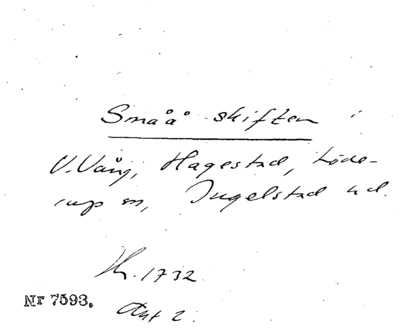 Småå skiften i
V. Vång, Hagestad, Löde-
rup sn, Ingelstad hd.
Hr. 1732
Nr 7593.
Akt 2.